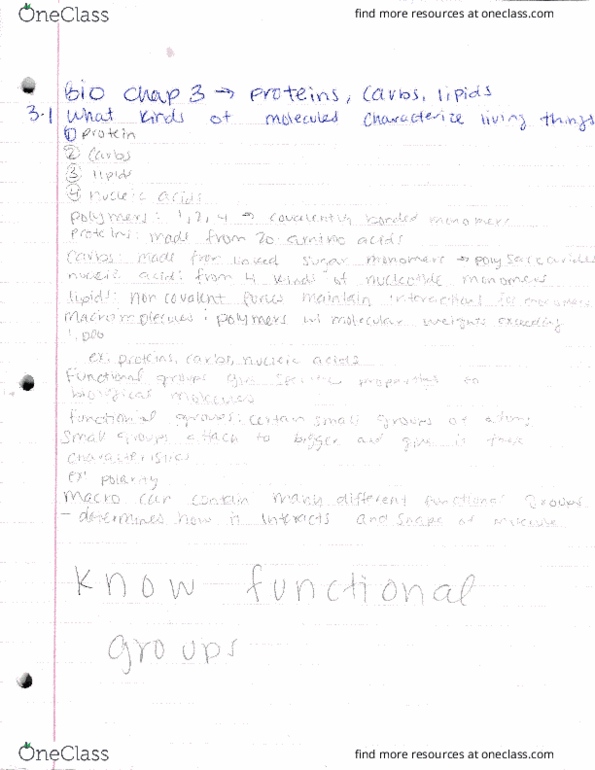 OneClass
find more resources at oneclass.com
Bio Chap 3 → proteins, Carbs, lipids
3.1 What kinds of molecules characterize living things
① protein
② Carbs
③ lipids
④ nucleic acids
polymers: 1, 2, 4 → covalently bonded monomers
Proteins: made from 20 amino acids
Carbs: made from linked sugar monomers → polysaccarides
nucleic acid: from 4 kinds of nucleotide monomers
lipids: non covalent forces maintain interactions monomers
Macromolecules: polymers w/ molecular weights exceeding
1,000
ex. proteins, carbs, nucleic acids
Functional groups give specific properties to
biological molecules
functional groups: certain small groups of atoms
Small groups attach to bigger and give it these
characteristics
ex: polarity
Macro can contain many different functional groups
- determines how it interacts and shape of molecule
know functional
groups
OneClass
find more resources at oneclass.com